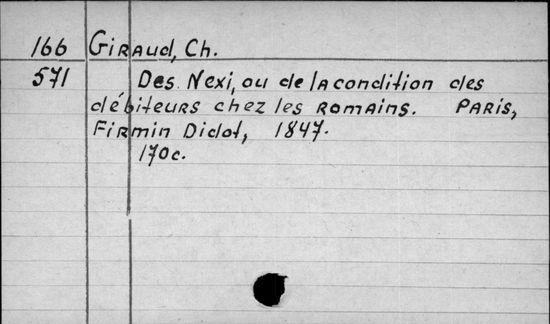 166 Giraud, Ch.
571 Des Nexi, ou de la condition des
débiteurs chez les romains. Paris,
Firmin Didot, 1847.
170c.